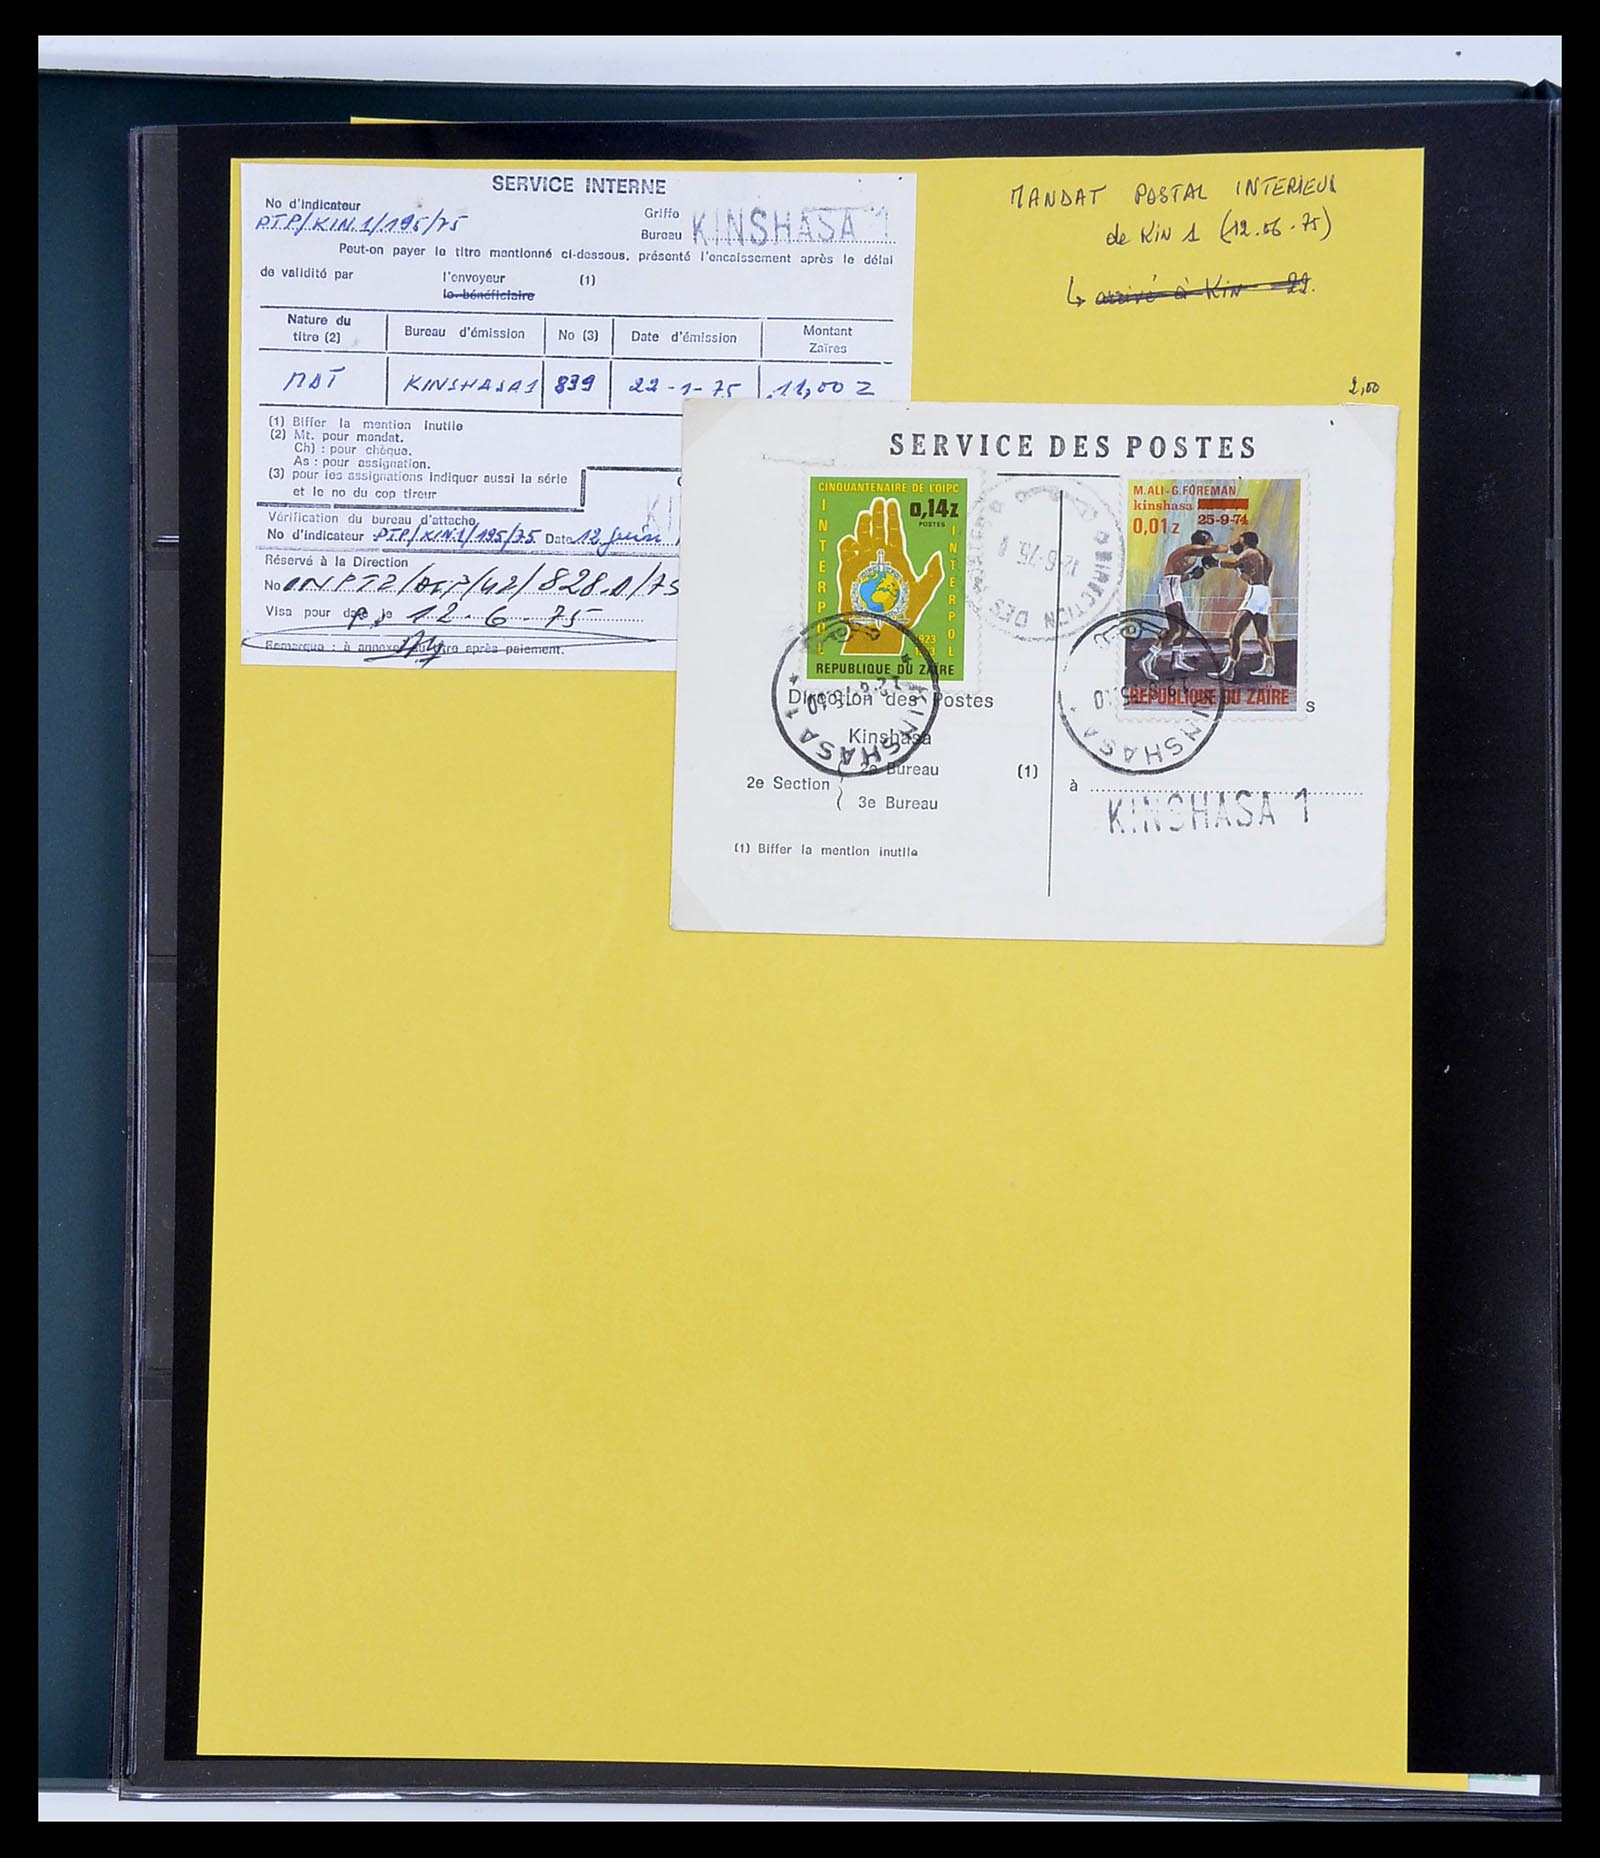 SERVICE INTERNE
No d'indicateur
PTP/KIN.1/195/75
Griffe
Bureau KINSHASA 1
Peut-on payer le titre mentionné ci-dessous, présenté l'encaissement après le délai
de validité par l'envoyeur (1)
le bénéficiaire
Nature du titre (2) Bureau d'émission No (3) Date d'émission Montant Zaïres
MDT KINSHASA1 839 22-1-75 11,00 Z
(1) Biffer la mention inutile
(2) Mt. pour mandat.
Ch) : pour chèque.
As : pour assignation.
(3) pour les assignations indiquer aussi la série
et le no du cop tireur
KI
Vérification du bureau d'attache
No d'indicateur PTP/KIN.1/195/75 Date 12 juin
Réservé à la Direction
No /42/828.D/75
Visa pour date le 12-6-75
Remarque : à annexer au titre après paiement.
MANDAT POSTAL INTERIEUR
de KIN 1 (12.06.75)
↳ arrivé à Kin 22.
2,00
SERVICE DES POSTES
CINQUANTENAIRE DE L'OIPC
0,14Z
POSTES
INTERPOL
INTERPOL
1923
REPUBLIQUE DU ZAÏRE
DIRECTION DES
12-6-75
M.ALI-G.FOREMAN
kinshasa
25-9-74
0,01 Z
REPUBLIQUE DU ZAÏRE
s
Direction des Postes
Kinshasa
2e Section
2e Bureau
3e Bureau
(1)
à
KINSHASA 1
KINSHASA 1
KINSHASA
(1) Biffer la mention inutile